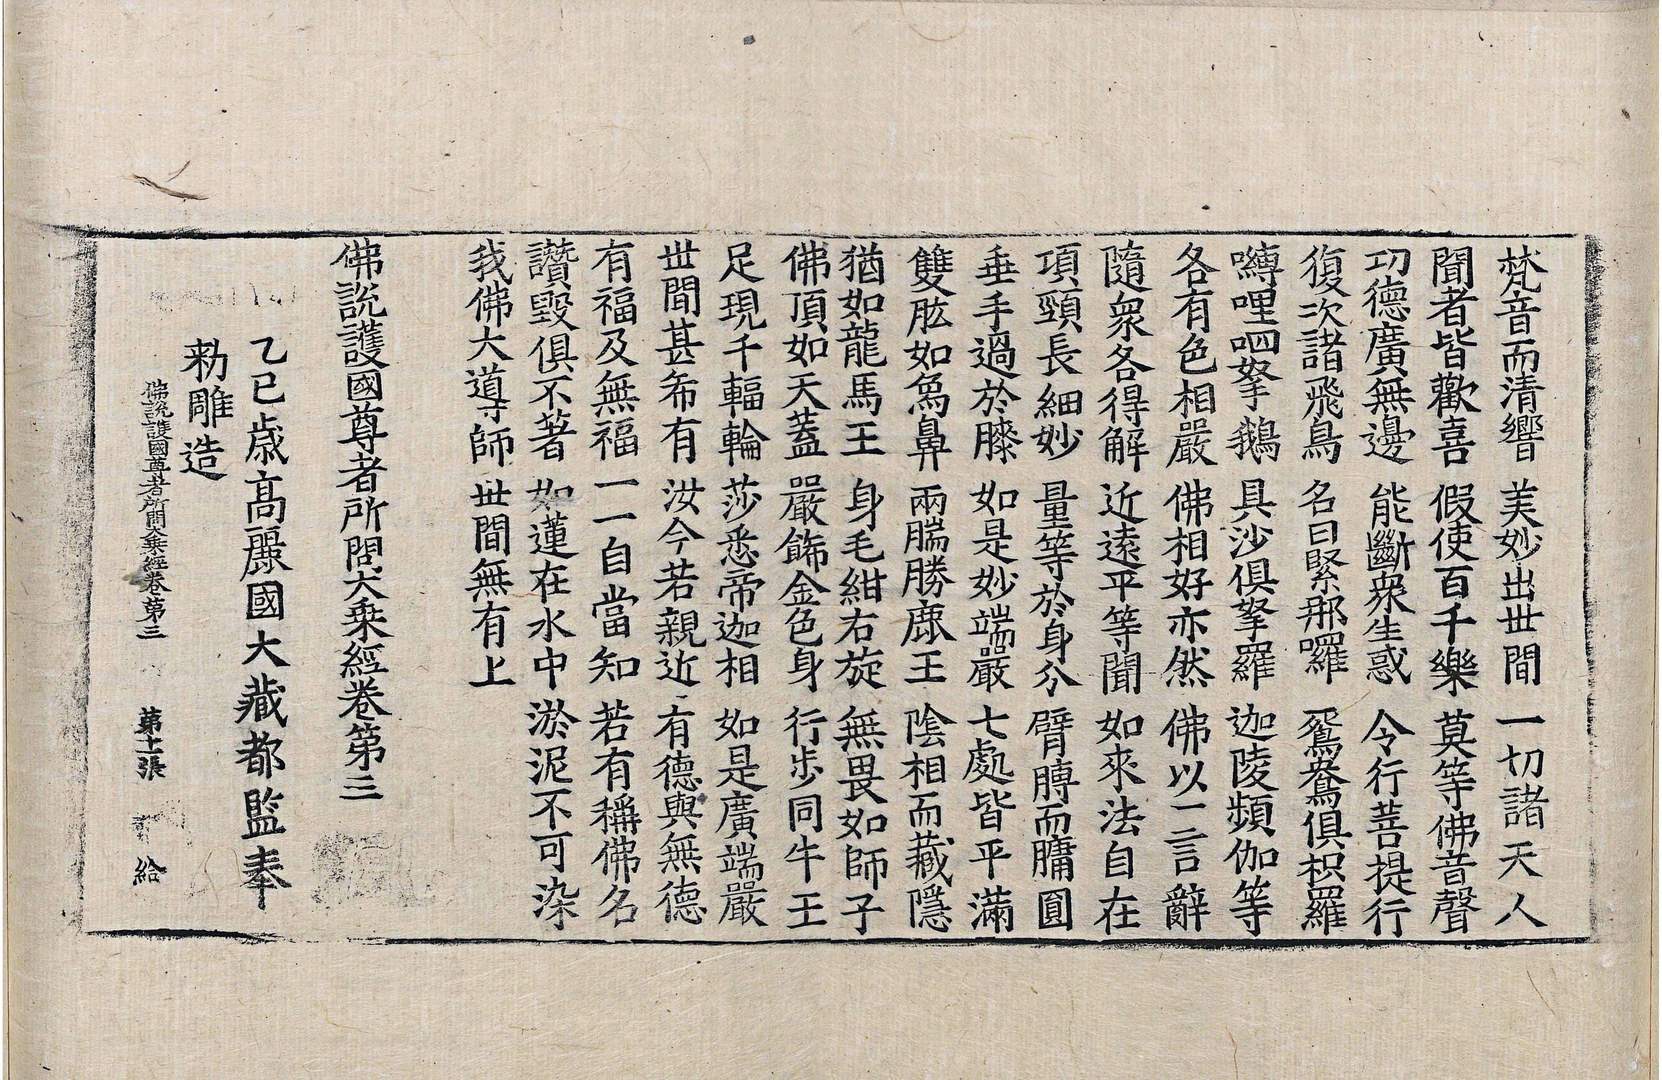 梵音而清響 美妙出世間 一切諸天人
聞者皆歡喜 假使百千樂 莫等佛音聲
功德廣無邊 能斷衆生惑 令行菩提行
復次諸飛鳥 名曰緊那囉 鴛鴦俱枳羅
嚩哩呬拏鵝 具沙俱拏羅 迦陵頻伽等
各有色相嚴 佛相好亦然 佛以一言辭
隨衆各得解 近遠平等聞 如來法自在
項頸長細妙 量等於身分 臂膊而牗圓
垂手過於膝 如是妙端嚴 七處皆平滿
雙肱如象鼻 兩腨勝鹿王 陰相而藏隱
猶如龍馬王 身毛紺右旋 無畏如師子
佛頂如天蓋 嚴飾金色身 行步同牛王
足現千輻輪 莎悉帝迦相 如是廣端嚴
世間甚希有 汝今若親近 有德與無德
有福及無福 一一自當知 若有稱佛名
讚毀俱不著 如蓮在水中 淤泥不可染
我佛大導師 世間無有上
佛說護國尊者所問大乘經卷第三
乙巳歲高麗國大藏都監奉
勅雕造
佛說護國尊者所問大乘經卷第三 第十一張 給